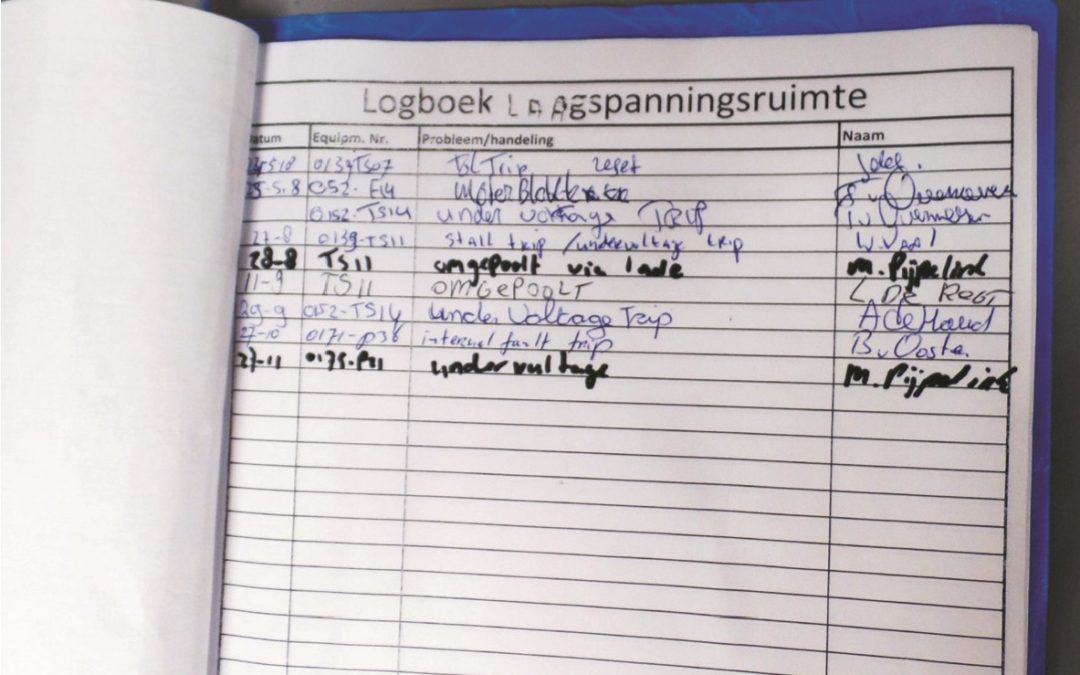 Logboek Laagspanningsruimte
atum Equipm. Nr. Probleem/handeling Naam
Trip reset
052-E14
0152-TS14 under voltage TRIP
27-8 0139-TS11 stall trip /undervoltage trip W. Vaal
28-8 TS11 omgepoolt via lade M. Pijpelink
11-9 TS11 OMGEPOOLT L DE REGT
29-9 0152-TS14 Under Voltage Trip
27-10 0171-P36 internal fault trip B v Ooste
27-11 0175-P11 undervultage M. Pijpelink